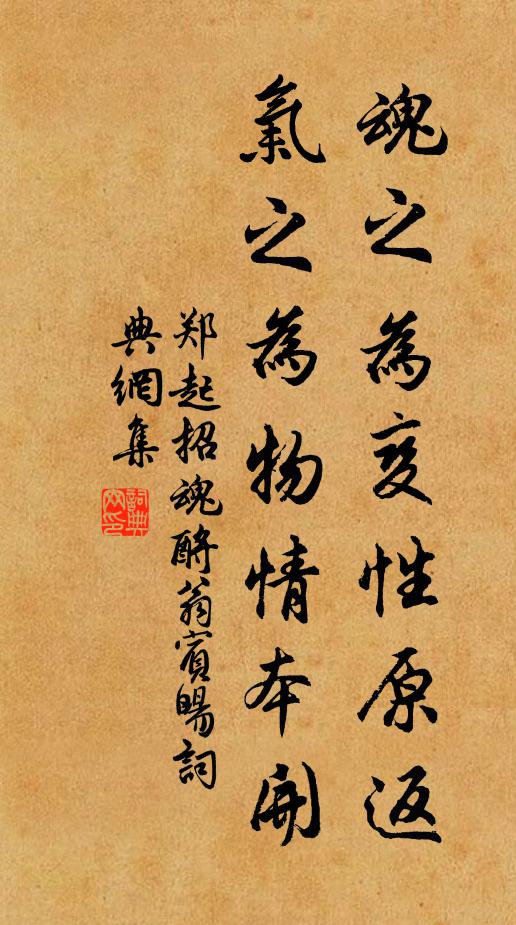 魂之為变性原返
氣之為物情本開
郑起招魂酧翁賓暘詞
典網集
詞典网印